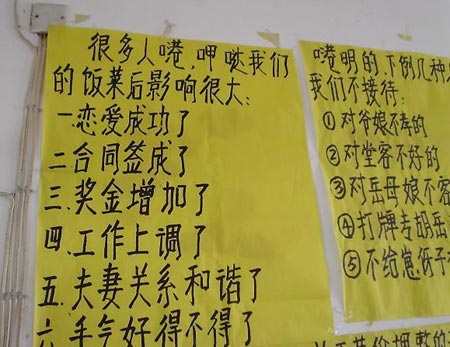 很多人嗯,呷哒我们
的饭菜后影响很大:
一.恋爱成功了
二合同签成了
三.奖金增加了
四.工作上调了
五.夫妻关系和谐了
六.手气好得不得了
嗯明的.下例几种
我们不接待:
①对爷娘不孝的
②对堂客不好的
③对岳母娘不客
④打牌专胡岳
⑤不给崽伢子